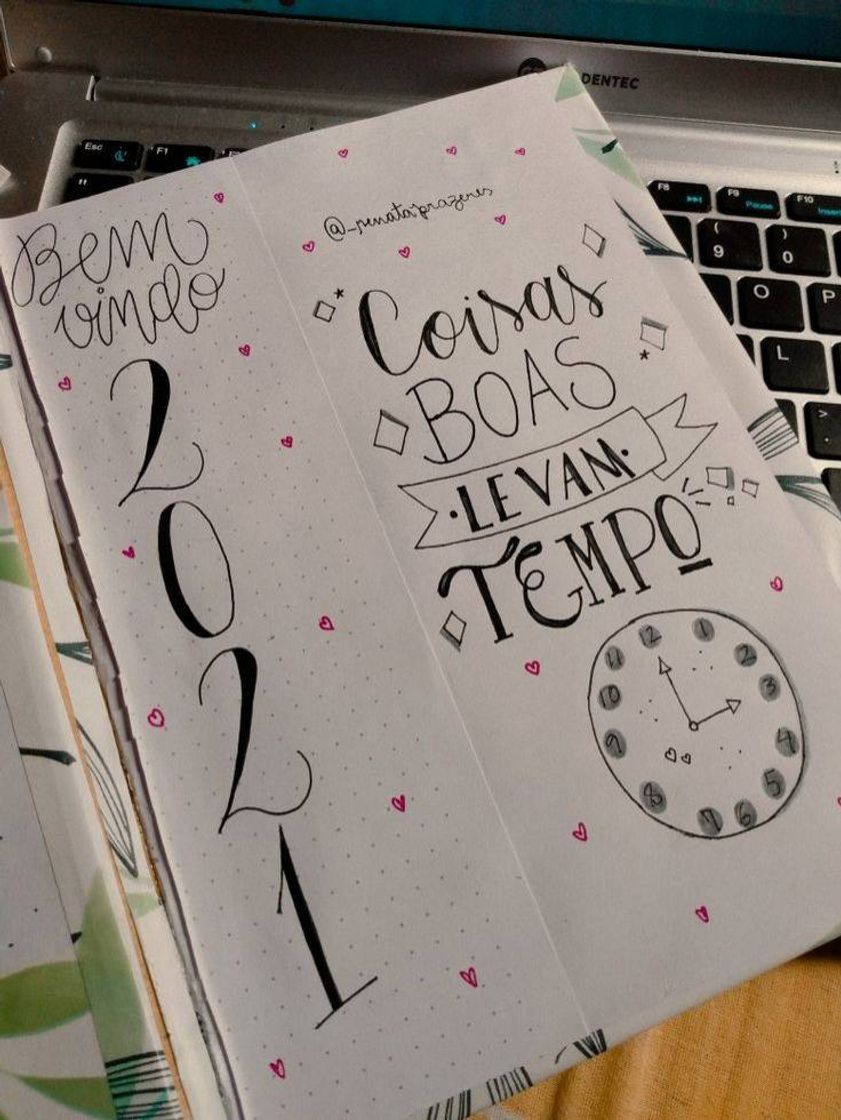 DENTEC
Esc
F1
F8
F9 Pause
F10 Insert
( 9
) 0
O
P
L
>
.
"
Bem
vindo
2
0
2
1
@_renataprazeres
Coisas
BOAS
·LEVAM·
TEMPO
12
1
2
3
4
5
6
7
8
9
10
11